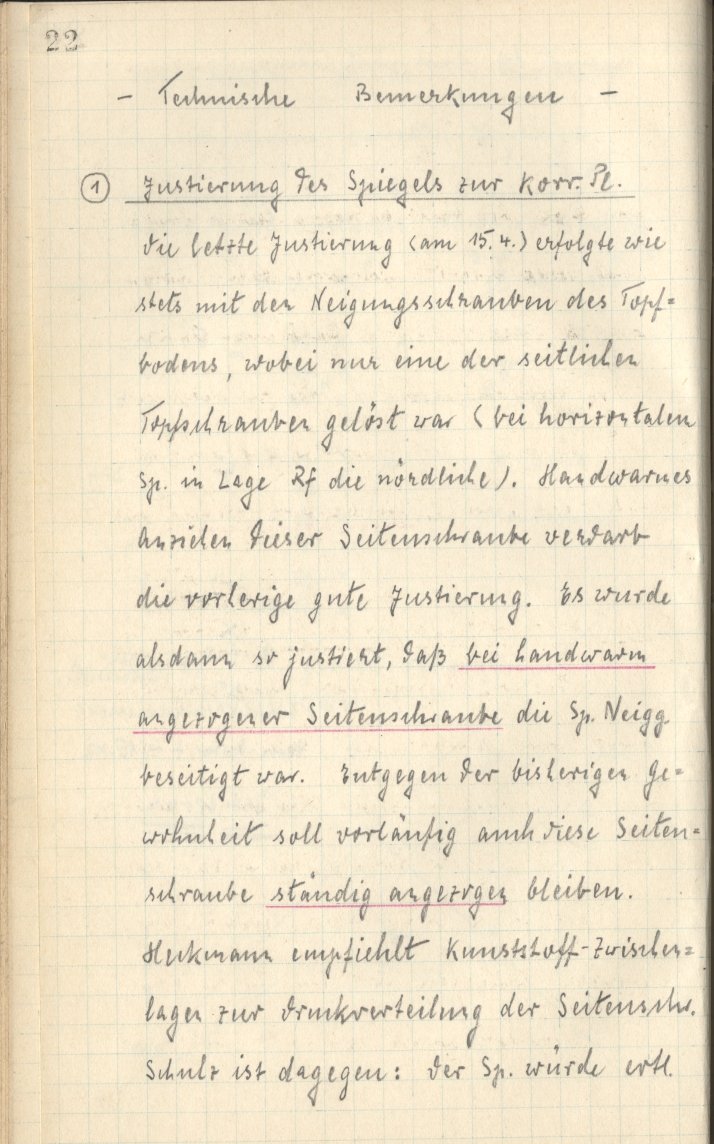 22
– Technische Bemerkungen –
① Justierung des Spiegels zur Korr. Pl.
Die letzte Justierung (am 15.4.) erfolgte wie
stets mit den Neigungsschrauben des Topf=
bodens, wobei nur eine der seitlichen
Topfschrauben gelöst war (bei horizontalem
Sp. in Lage Rf die nördliche). Handwarmes
Anziehen dieser Seitenschraube verdarb
die vorherige gute Justierung. Es wurde
alsdann so justiert, daß bei handwarm
angezogener Seitenschraube die Sp. Neigg.
beseitigt war. Entgegen der bisherigen Ge=
wohnheit soll vorläufig auch diese Seiten=
schraube ständig angezogen bleiben.
Heckmann empfiehlt Kunststoff-Zwischen=
lagen zur Druckverteilung der Seitenschr.
Schulz ist dagegen: Der Sp. würde evtl.